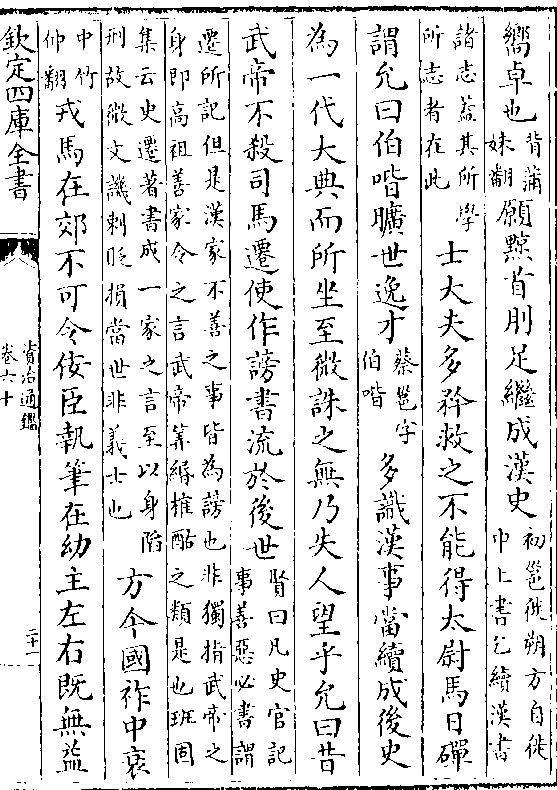 嚮卓也背蒲妹翻願黥首刖足繼成漢史初邕徙朔方自徙中上書乞續漢書
諸志蓋其所學所志者在此士大夫多矜救之不能得太尉馬日磾
謂允曰伯喈曠世逸才蔡邕字伯喈多識漢事當續成後史
為一代大典而所坐至微誅之無乃失人望乎允曰昔
武帝不殺司馬遷使作謗書流於後世賢曰凡史官記事善惡必書謂
遷所記但是漢家不善之事皆為謗也非獨指武帝之
身即高祖善家令之言武帝算緡榷酤之類是也班固
集云史遷著書成一家之言至以身陷刑故微文譏刺貶損當世非義士也方今國祚中衰
中竹仲翻戎馬在郊不可令佞臣執筆在幼主左右既無益
欽定四庫全書
資治通鑑
卷六十
二十一